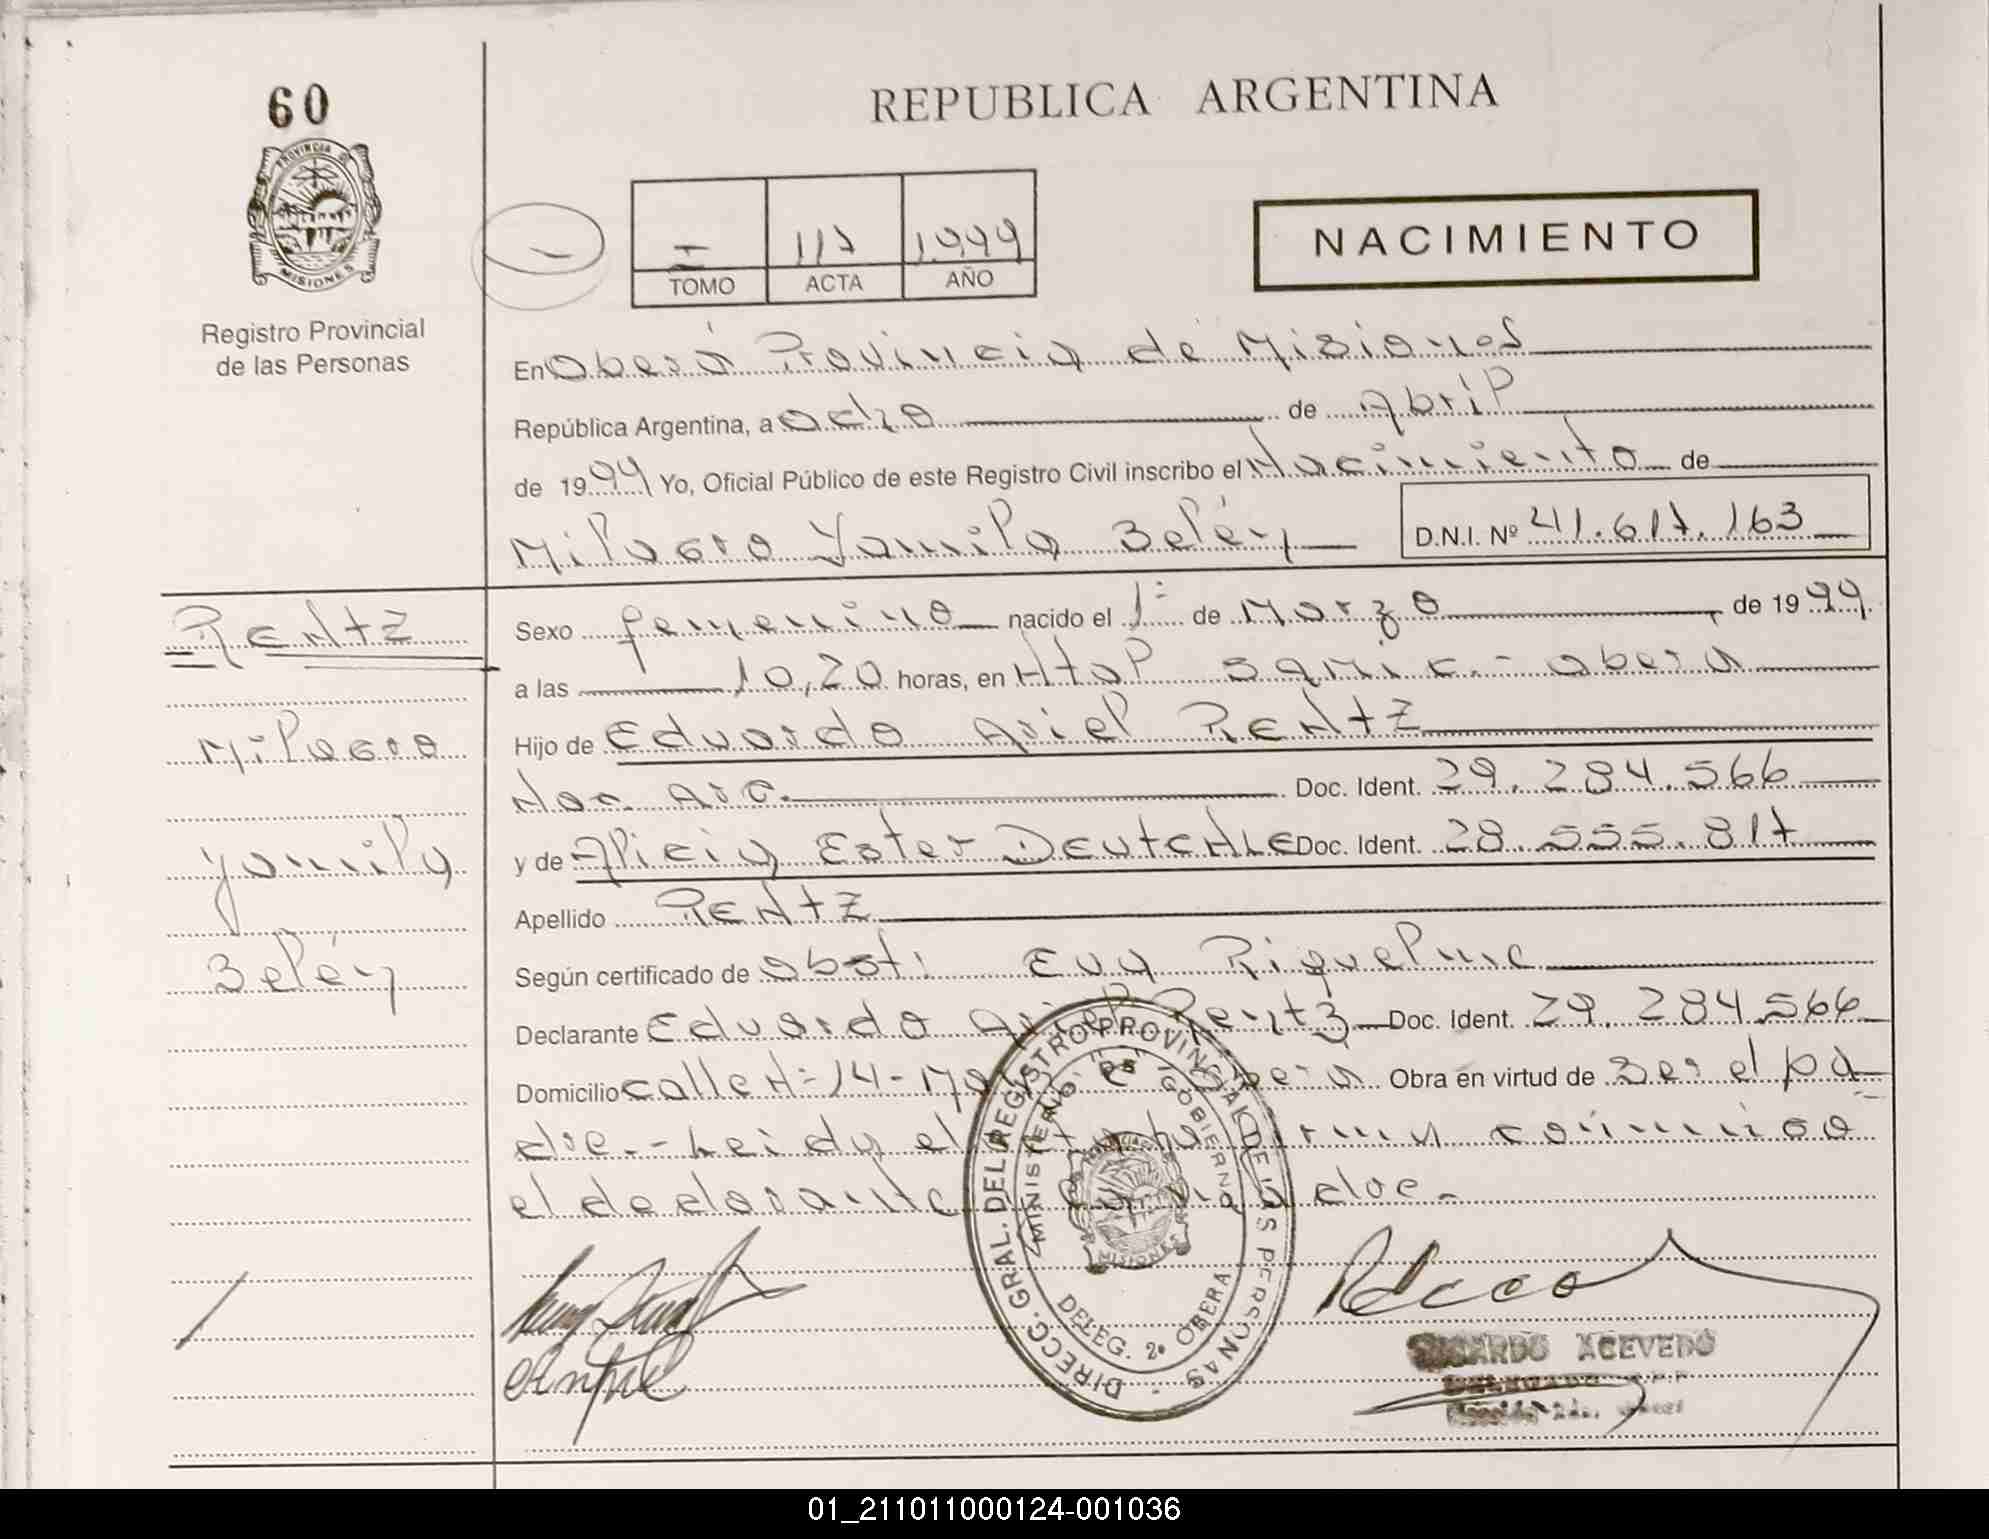 60
PROVINCIA DE
MISIONES
Registro Provincial
de las Personas
REPUBLICA ARGENTINA
I 117 1.999
TOMO ACTA AÑO
NACIMIENTO
En Oberá Provincia de Misiones
República Argentina, a ocho de Abril
de 1999 Yo, Oficial Público de este Registro Civil inscribo el Nacimiento de
Milagro Yamila Belén D.N.I. Nº 41.617.163
Rentz
Milagro
Yamila
Belén
Sexo femenino nacido el 1º de Marzo de 1999
a las 10,20 horas, en Htal Samic.- Oberá
Hijo de Eduardo Ariel RENTZ
Nac. Arg. Doc. Ident. 29.284.566
y de Alicia Ester DEUTCHLE Doc. Ident. 28.555.817
Apellido RENTZ
Según certificado de Obst: Eva Riquelme
Declarante Eduardo Ariel Rentz Doc. Ident. 29.284.566
Domicilio calle Nº 14 - Oberá Obra en virtud de Ser el pa
dre.- Leida el acta la firma conmigo
el declarante y la madre.-
DIRECC. GRAL. DEL REGISTRO PROVINCIAL DE LAS PERSONAS
MINISTERIO DE GOBIERNO
MISIONES
DELEG. 2º OBERA
RICARDO ACEVEDO
DELEGADO R.P.P.
01_211011000124-001036